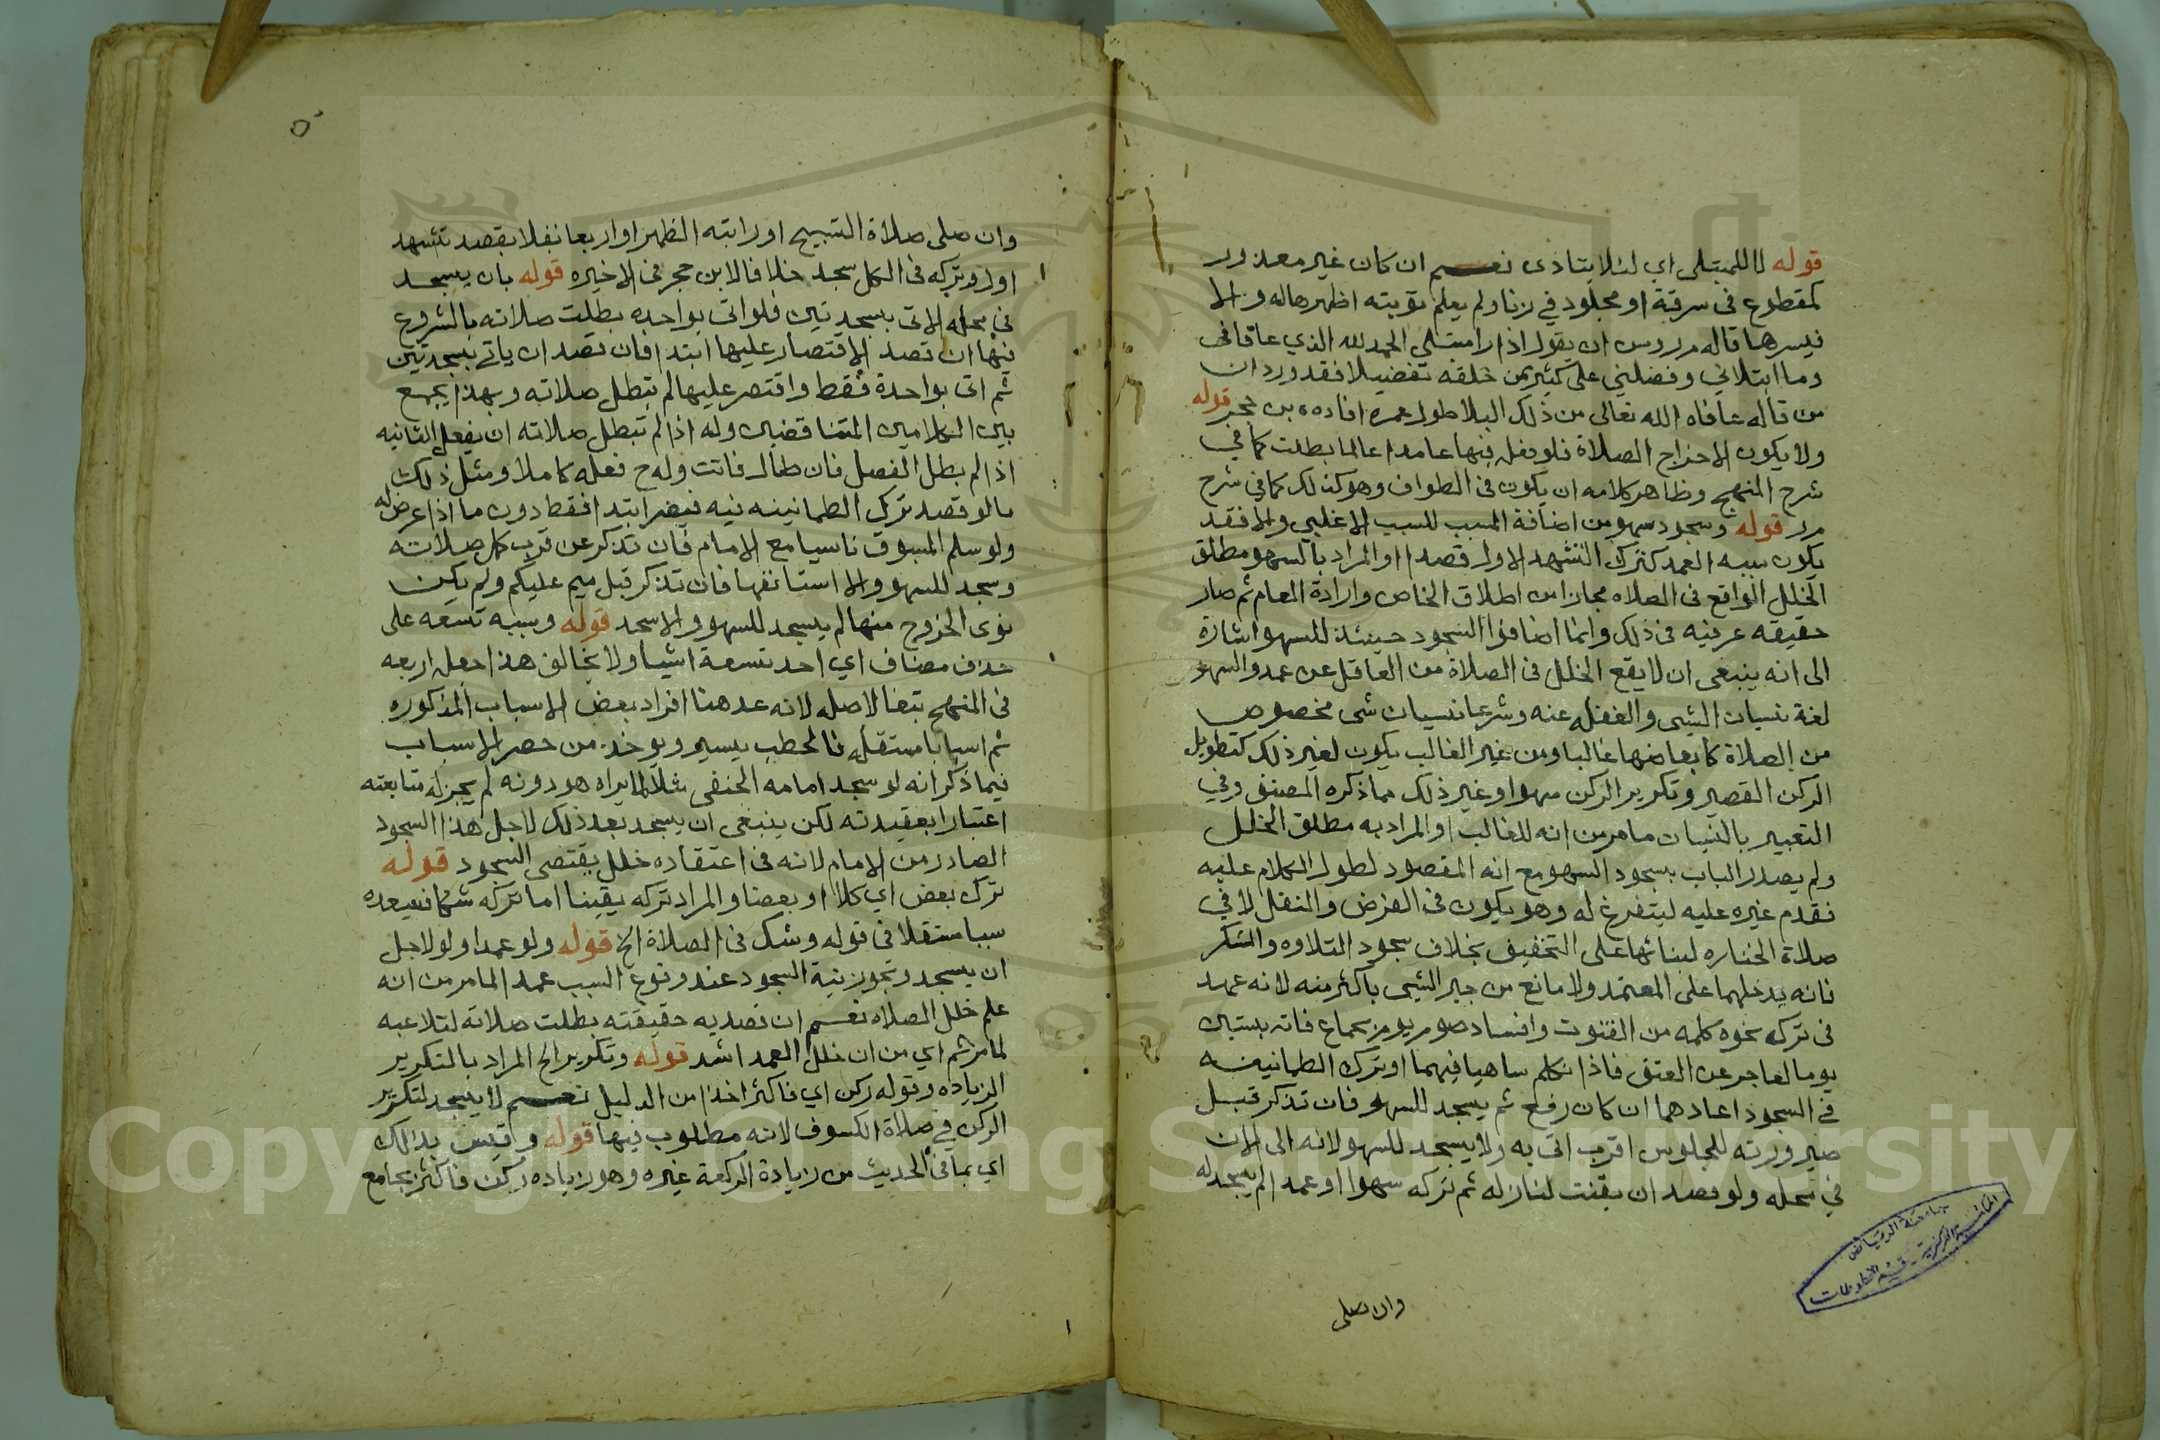 قوله لا للمبتلى اي لئلا يتاذى نعم ان كان غير معذور
كمقطوع في سرقة او مجلود في زنا ولم يعلم توبته اظهرها له والا
فيسرها قاله م ر ويسن ان يقول اذا راى مبتلى الحمد لله الذي عافاني
وما ابتلاني وفضلني على كثير من خلقه تفضيلا فقد ورد ان
من قاله عافاه الله تعالى من ذلك البلا طول عمره افاده بن حجر قوله
ولا يكون الا خراج الصلاة فلو فعله فيها عامدا عالما بطلت كما في
شرح المنهج وظاهر كلامه ان يكون في الطواف وهو كذلك كما في شرح
م ر قوله وسجود سهو من اضافة المسبب للسبب الاغلبي والا فقد
يكون سببه العمد كترك التشهد الاول قصدا او المراد بالسهو مطلق
الخلل الواقع في الصلاه مجازا من اطلاق الخاص وارادة العام ثم صار
حقيقه عرفيه في ذلك وانما اضافوا السجود حينئذ للسهو اشارة
الى انه ينبغي ان لا يقع الخلل في الصلاة من العاقل عن عمد والسهو
لغة نسيان الشي والغفله عنه وشرعا نسيان شي مخصوص
من الصلاة كابعاضها غالبا ومن غير الغالب يكون لغير ذلك كتطويل
الركن القصير وتكرير الركن سهوا وغير ذلك مما ذكره المصنف وفي
التعبير بالنسيان ما مر من انه للغالب او المراد به مطلق الخلل
ولم يصدر الباب بسجود السهو مع انه المقصود لطول الكلام عليه
فقدم غيره عليه ليتفرغ له وهو يكون في الفرض والنفل لا في
صلاة الجنازه لبنائها على التخفيف بخلاف سجود التلاوه والشكر
فانه يدخلهما على المعتمد ولا مانع من جبر الشي باكثر منه لانه عهد
في تركه نحوه كلمه من القنوت وافساد صوم يوم بجماع فانه بستين
يوما لعاجر عن العتق فاذا تكلم ساهيا فيهما او ترك الطمانينه
في السجود اعادهما ان كان رفع ثم يسجد للسهو فان تذكر قبل
صيرورته للجلوس اقرب اتى به ولا يسجد للسهو لانه الى الان
في محله ولو قصد ان يقنت لنازله ثم تركه سهوا او عمدا لم يسجد له
وان صلى
جامعة الرياض
المكتبة المركزية - قسم المخطوطات
٥
وان صلى صلاة التسبيح او راتبه الظهر او اربعا نفلا بقصد تشهد
اول وتركه في الكل سجد خلافا لابن حجر في الاخيره قوله بان يسجد
في محله الاتي بسجدتين فلو اتى بواحده بطلت صلاته بالشروع
فيها ان قصد الاقتصار عليها ابتدا فان قصد ان ياتي بسجدتين
ثم اتى بواحدة فقط واقتصر عليها لم تبطل صلاته وبهذا يجمع
بين الكلامين المتناقضين وله اذا لم تبطل صلاته ان يفعل الثانيه
اذا لم يطل الفصل فان طال فاتت وله ح فعله كاملا ومثل ذلك
ما لو قصد ترك الطمانينه فيه فيضر ابتدا فقط دون ما اذا عرض له
ولو سلم المسبوق ناسيا مع الامام فان تذكر عن قرب كمل صلاته
وسجد للسهو والا استانفها فان تذكر قبل ميم عليكم ولم يكن
نوى الخروج منها لم يسجد للسهو والا سجد قوله وسببه تسعه على
حذف مضاف اي احد تسعة اشيا ولا يخالف هذا جعله اربعه
في المنهج تبعا لاصله لانه عد هنا افراد بعض الاسباب المذكوره
ثم اسبابا مستقله فالخطب يسير ويوخذ من حصر الاسباب
فيما ذكر انه لو سجد امامه الحنفي مثلا لما يراه هو دونه لم يجز له متابعته
اعتبارا بعقيدته لكن ينبغي ان يسجد بعد ذلك لاجل هذا السجود
الصادر من الامام لانه في اعتقاده خلل يقتضي السجود قوله
ترك بعض اي كلا او بعضا والمراد تركه يقينا اما تركه شكا فسيعده
سببا مستقلا في قوله وشك في الصلاة الخ قوله ولو عمدا ولو لاجل
ان يسجد وتجوز نية السجود عند وقوع السبب عمدا لما مر من انه
علم خلل الصلاه نعم ان قصد به حقيقته بطلت صلاته لتلاعبه
لما مر ثم اي من ان خلل العمد اشد قوله وتكرير الخ المراد بالتكرير
الزياده وقوله ركن اي فاكثر اخذا من الدليل نعم لا يسجد لتكرير
الركن في صلاة الكسوف لانه مطلوب فيها قوله وقيس بذالك
اي بما في الحديث من زيادة الركعة غيره وهو زياده ركن فاكثر بجامع
Copyright © King Saud University